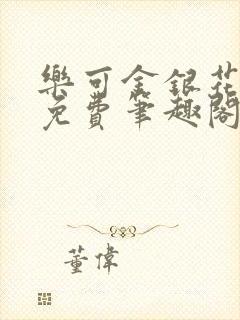 樂可金銀花
免費筆趣閣
董偉